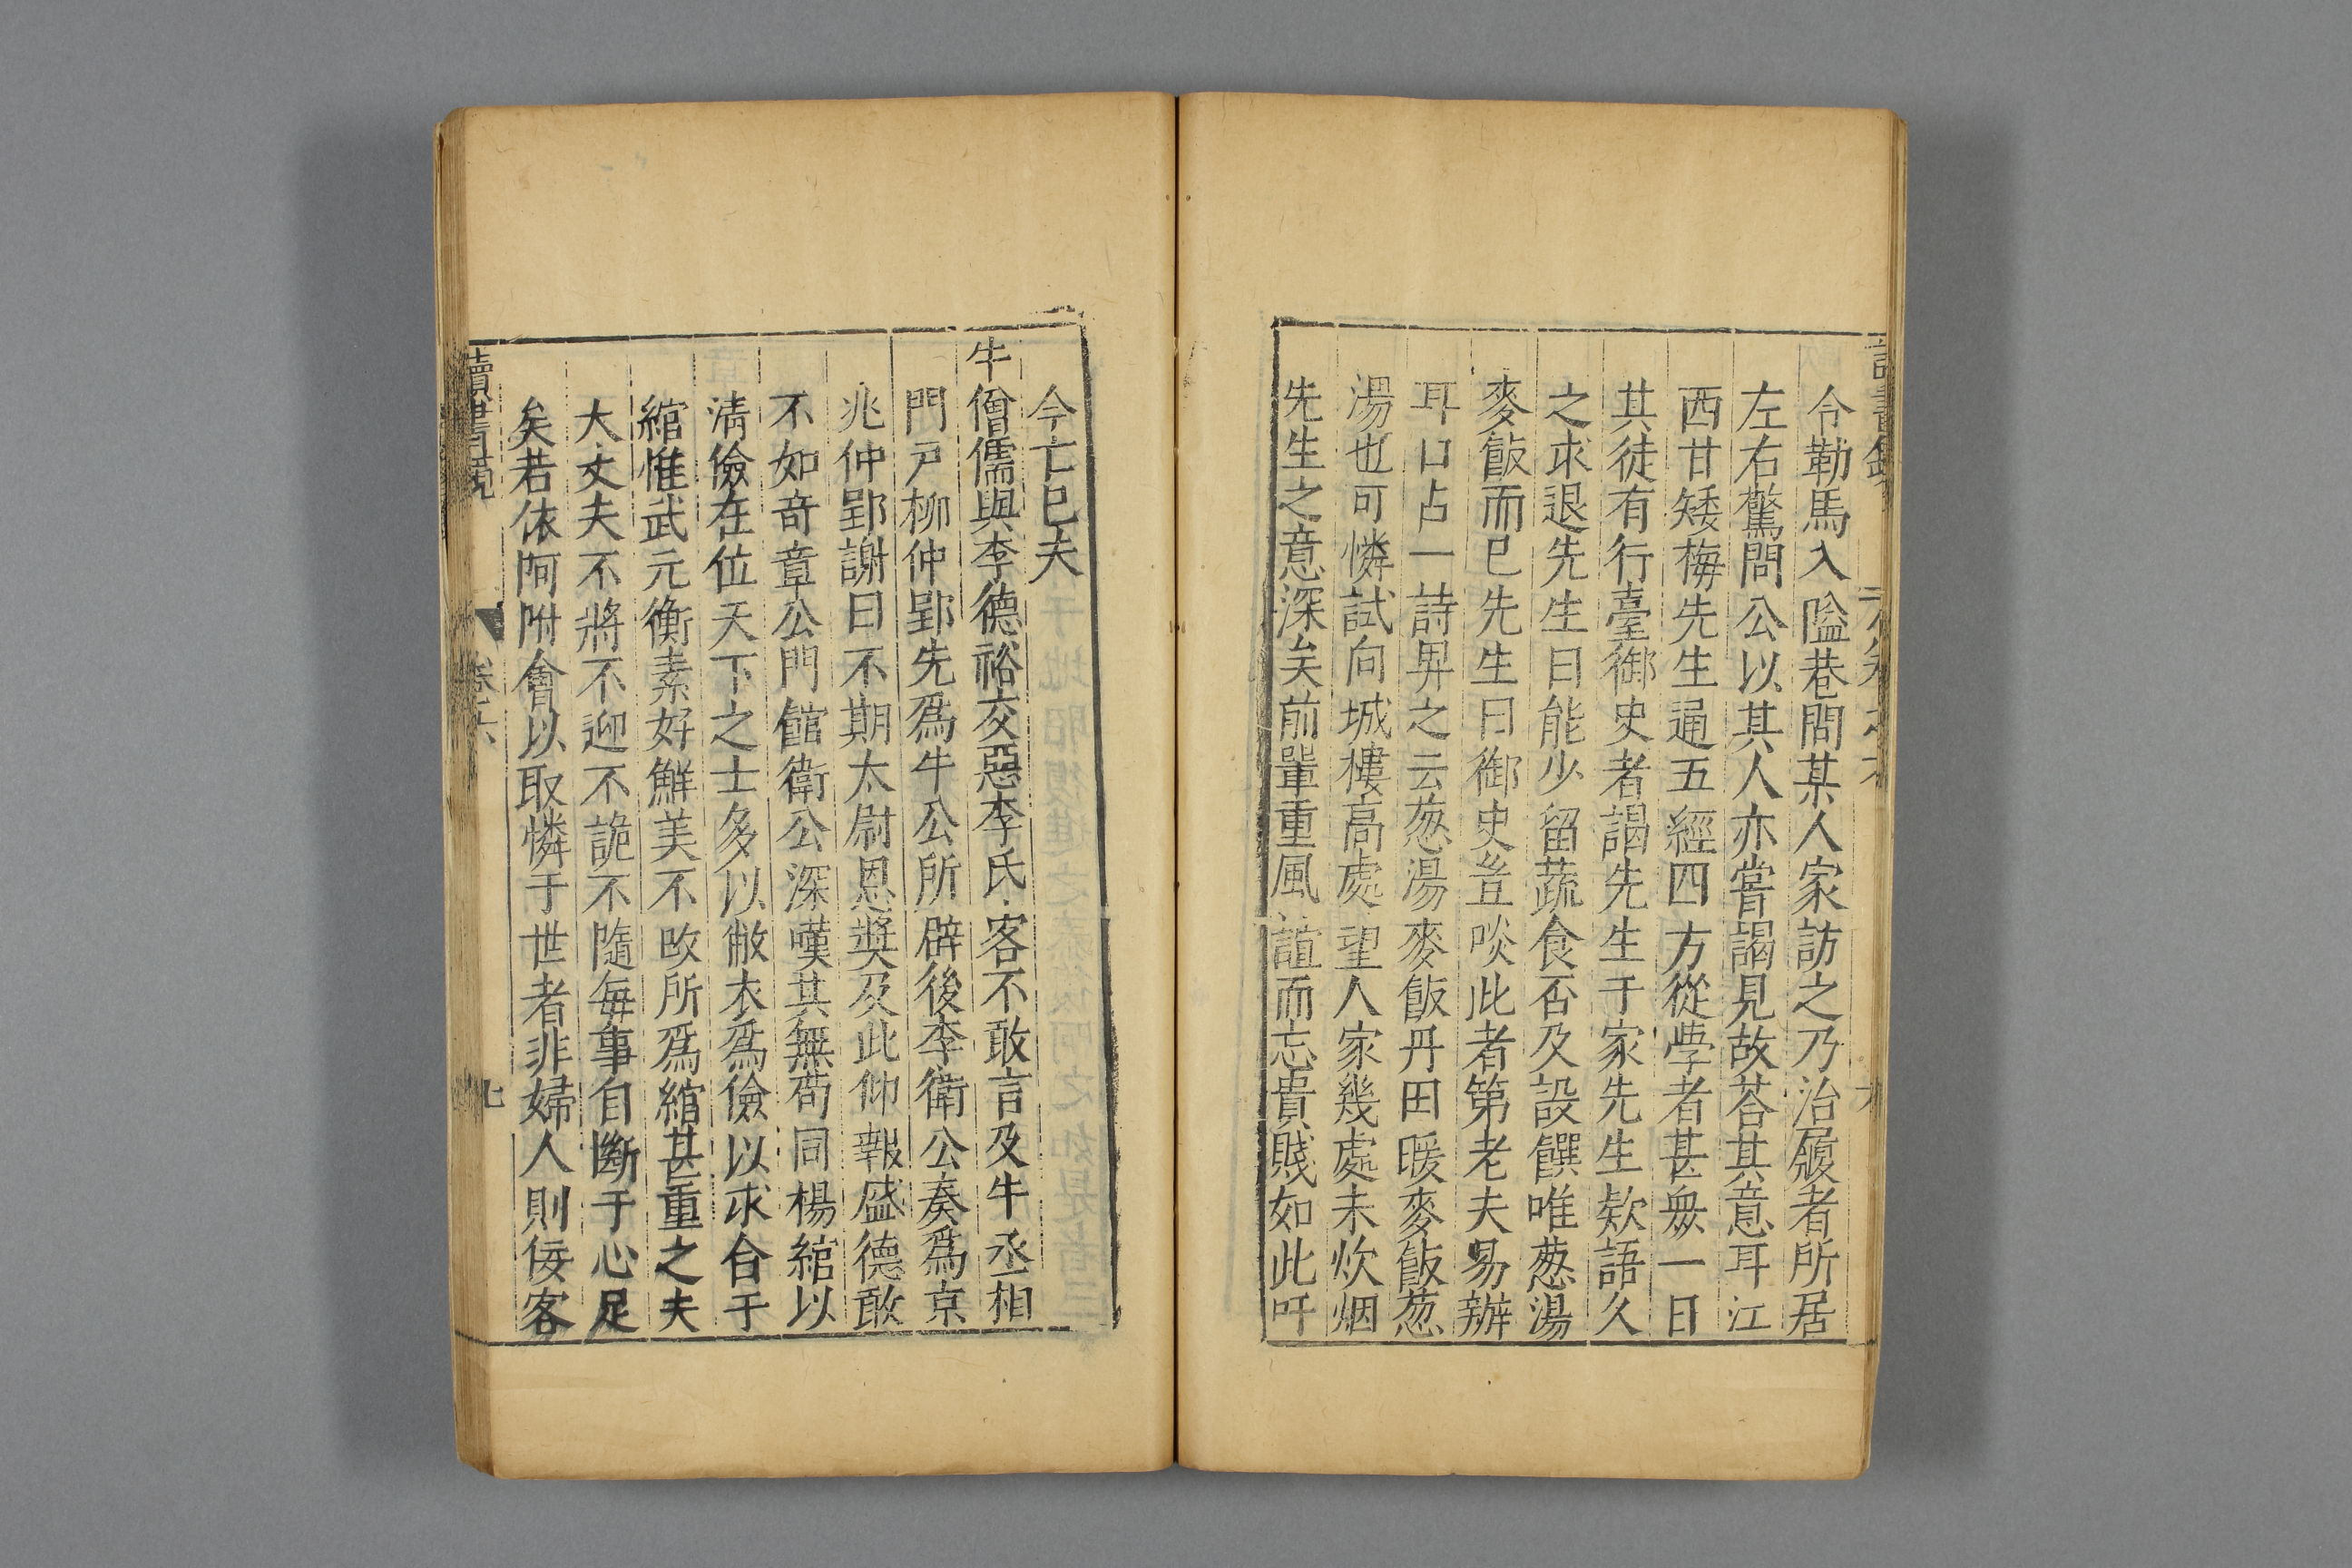 令勒馬入隘巷問某人家訪之乃治履者所居
左右驚問公以其人亦嘗謁見故荅其意耳江
西甘矮梅先生通五經四方從學者甚衆一日
其徒有行臺御史者謁先生于家先生欵語久
之求退先生曰能少留蔬食否及設饌唯葱湯
麥飯而已先生曰御史豈啖此者第老夫易辦
耳口占一詩畀之云葱湯麥飯丹田暖麥飯葱
湯也可憐試向城樓高處望人家幾處未炊烟
先生之意深矣前輩重風誼而忘貴賤如此吁
今亡已夫
牛僧儒與李德裕交惡李氏客不敢言及牛丞相
門戸柳仲郢先爲牛公所辟後李衛公奏爲京
兆仲郢謝曰不期太尉恩奬及此仰報盛德敢
不如奇章公門館衛公深嘆其無苟同楊綰以
淸儉在位天下之士多以敝衣爲儉以求合于
綰惟武元衡素好鮮美不改所爲綰甚重之夫
大丈夫不將不迎不詭不隨每事自斷于心足
矣若依阿附會以取憐于世者非婦人則佞客
讀書鏡
卷六
七